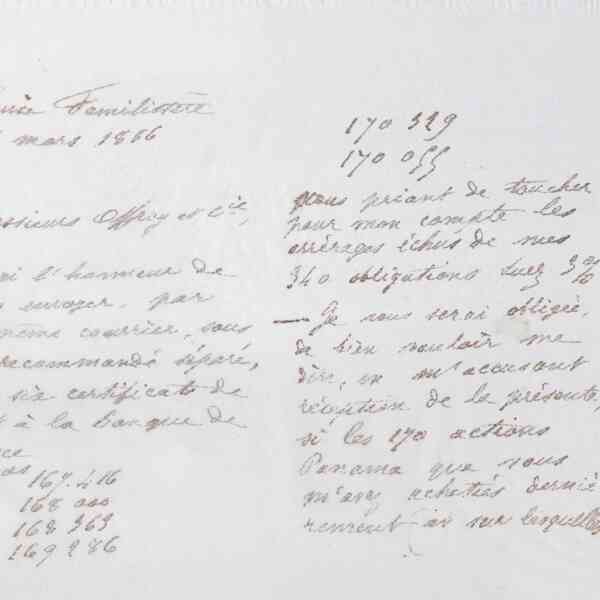 Familistère
mars 1886
Messieurs Offroy et Cie,
l'honneur de
envoyer, par
même courrier, sous
recommandé séparé,
six certificats de
à la banque de
167.416
168 000
168 363
169 286
170 329
170 055
vous priant de toucher
pour mon compte les
arrérages échus de mes
340 obligations Suez 3%
— Je vous serai obligée,
de bien vouloir me
dire, en m'accusant
réception de la présente,
si les 170 actions
Panama que vous
m'avez achetées derniè
rement et sur lesquelles